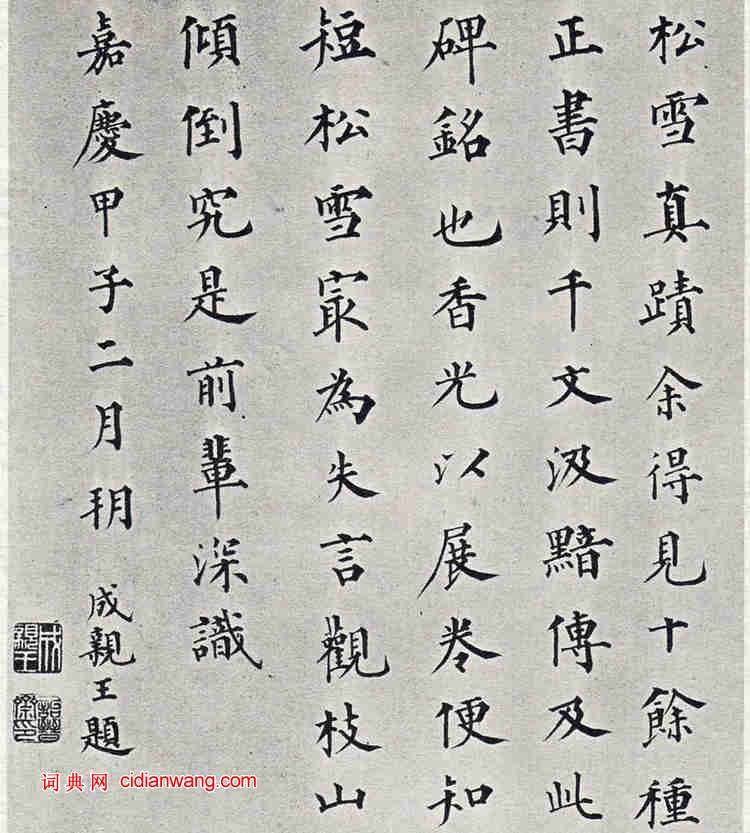 松雪真蹟余得見十餘種
正書則千文汲黯傳及此
碑銘也香光以展卷便知
短松雪㝡為失言觀枝山
傾倒究是前輩深識
嘉慶甲子二月玥 成親王題
成親王
詒晉齋印
词典网 cidianwang.com